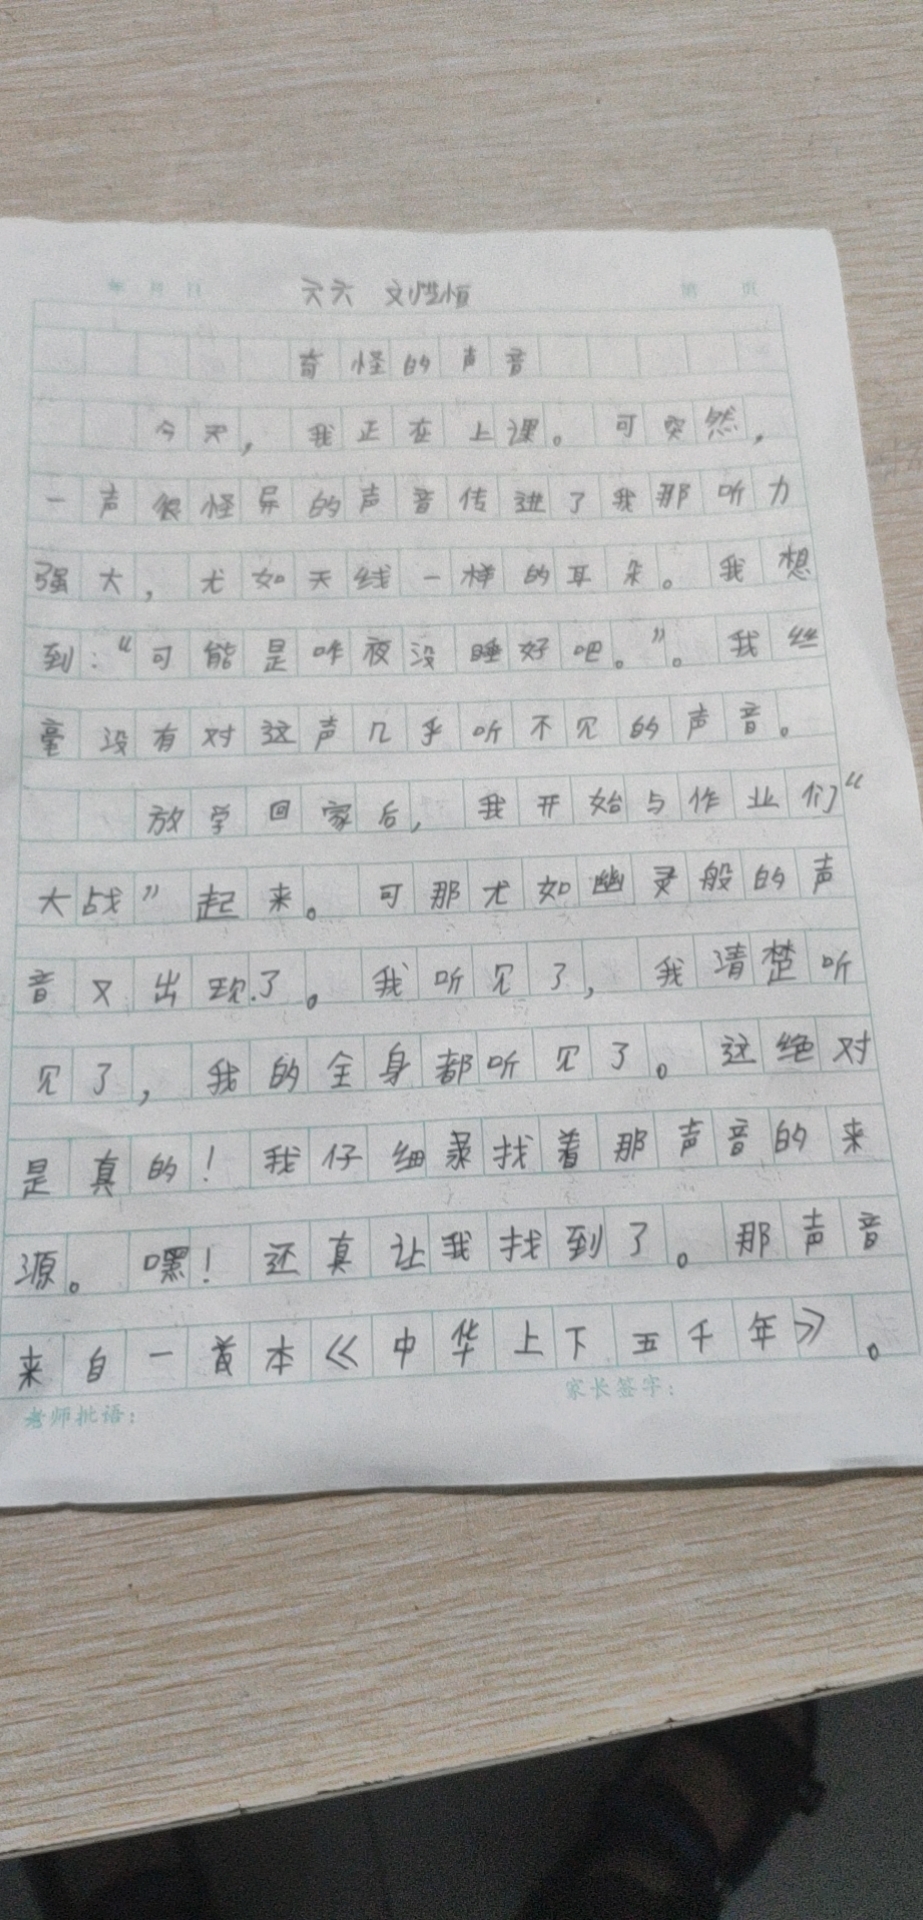 年 月 日 六六 刘恺恒 第 页
奇怪的声音
今天，我正在上课。可突然，
一声很怪异的声音传进了我那听力
强大，尤如天线一样的耳朵。我想
到：“可能是昨夜没睡好吧。”。我丝
毫没有对这声几乎听不见的声音。
放学回家后，我开始与作业们“
大战”起来。可那尤如幽灵般的声
音又出现了。我听见了，我清楚听
见了，我的全身都听见了。这绝对
是真的！我仔细寻找着那声音的来
源。嘿！还真让我找到了。那声音
来自一首本《中华上下五千年》。
老师批语： 家长签字：